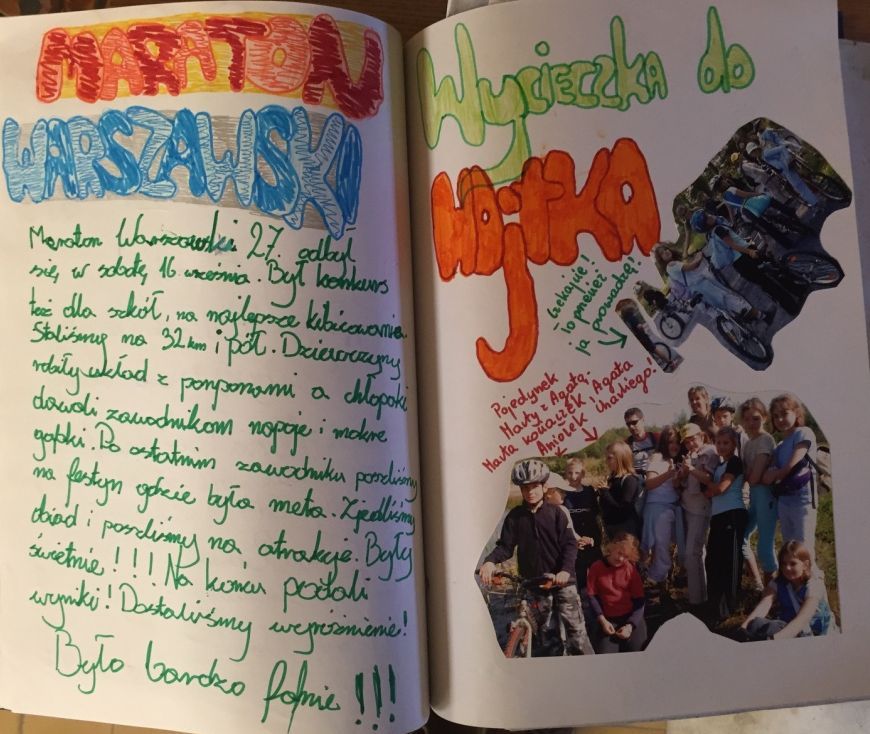 MARATON
WARSZAWSKI
Maraton Warszawski 27. odbył
się w sobotę 16. września. Był konkurs
też dla szkół, na najlepsze kibicowanie.
Staliśmy na 32 km i pół. Dziewczyny
robiły układ z ponponami a chłopaki
dawali zawodnikom napoje i mokre
gąbki. Po ostatnim zawodniku poszliśmy
na festyn gdzie była meta. Zjedliśmy
obiad i poszliśmy na atrakcje. Były
świetnie!!! Na końcu podali
wyniki! Dostaliśmy wyróżnienie!
Było bardzo fajnie!!!
Wycieczka do
Wojtka
- Czekajcie!
- to przecież
ja prowadzę!
Pojedynek
Marty z Agatą.
Marta kowaczek, Agata
Aniołek